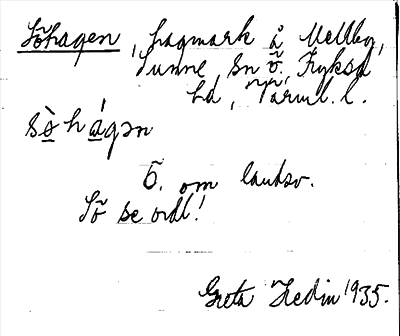 Söhagen, hagmark å Mellby,
Sunne, sn ö. Fryksd
hd, Värml. l.
sò̱ há̱gən
Ö. om landsv.
Sö se ordl!
Greta Hedin 1935.